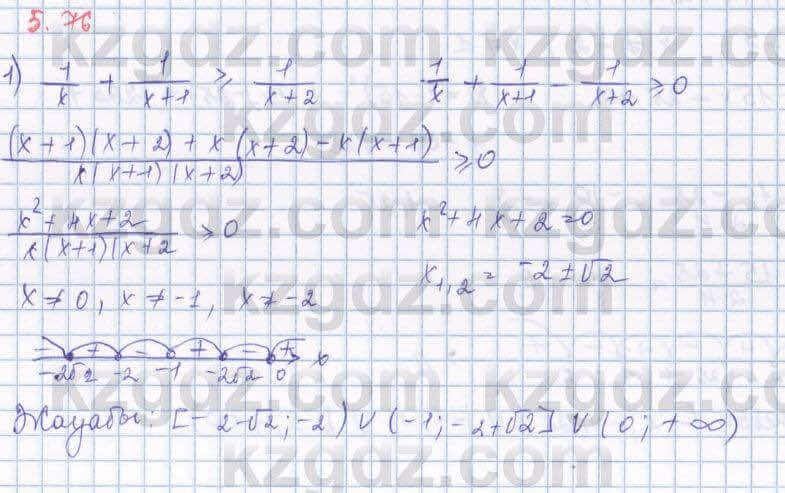 5.76
1) 1/x + 1/(x+1) ≥ 1/(x+2)    1/x + 1/(x+1) - 1/(x+2) ≥ 0
((x+1)(x+2) + x(x+2) - x(x+1)) / (x(x+1)(x+2)) ≥ 0
(x²+4x+2) / (x(x+1)(x+2) ≥ 0    x²+4x+2=0
x₁,₂ = -2±√2
x≠0, x≠-1, x≠-2
- + - + - +
-2√2 -2 -1 -2√2 0 x
Жауабы: [-2-√2; -2) ∪ (-1; -2+√2] ∪ (0; +∞)
kzgdz.com
kzgdz.com
kzgdz.com
kzgdz.com
kzgdz.com
kzgdz.com